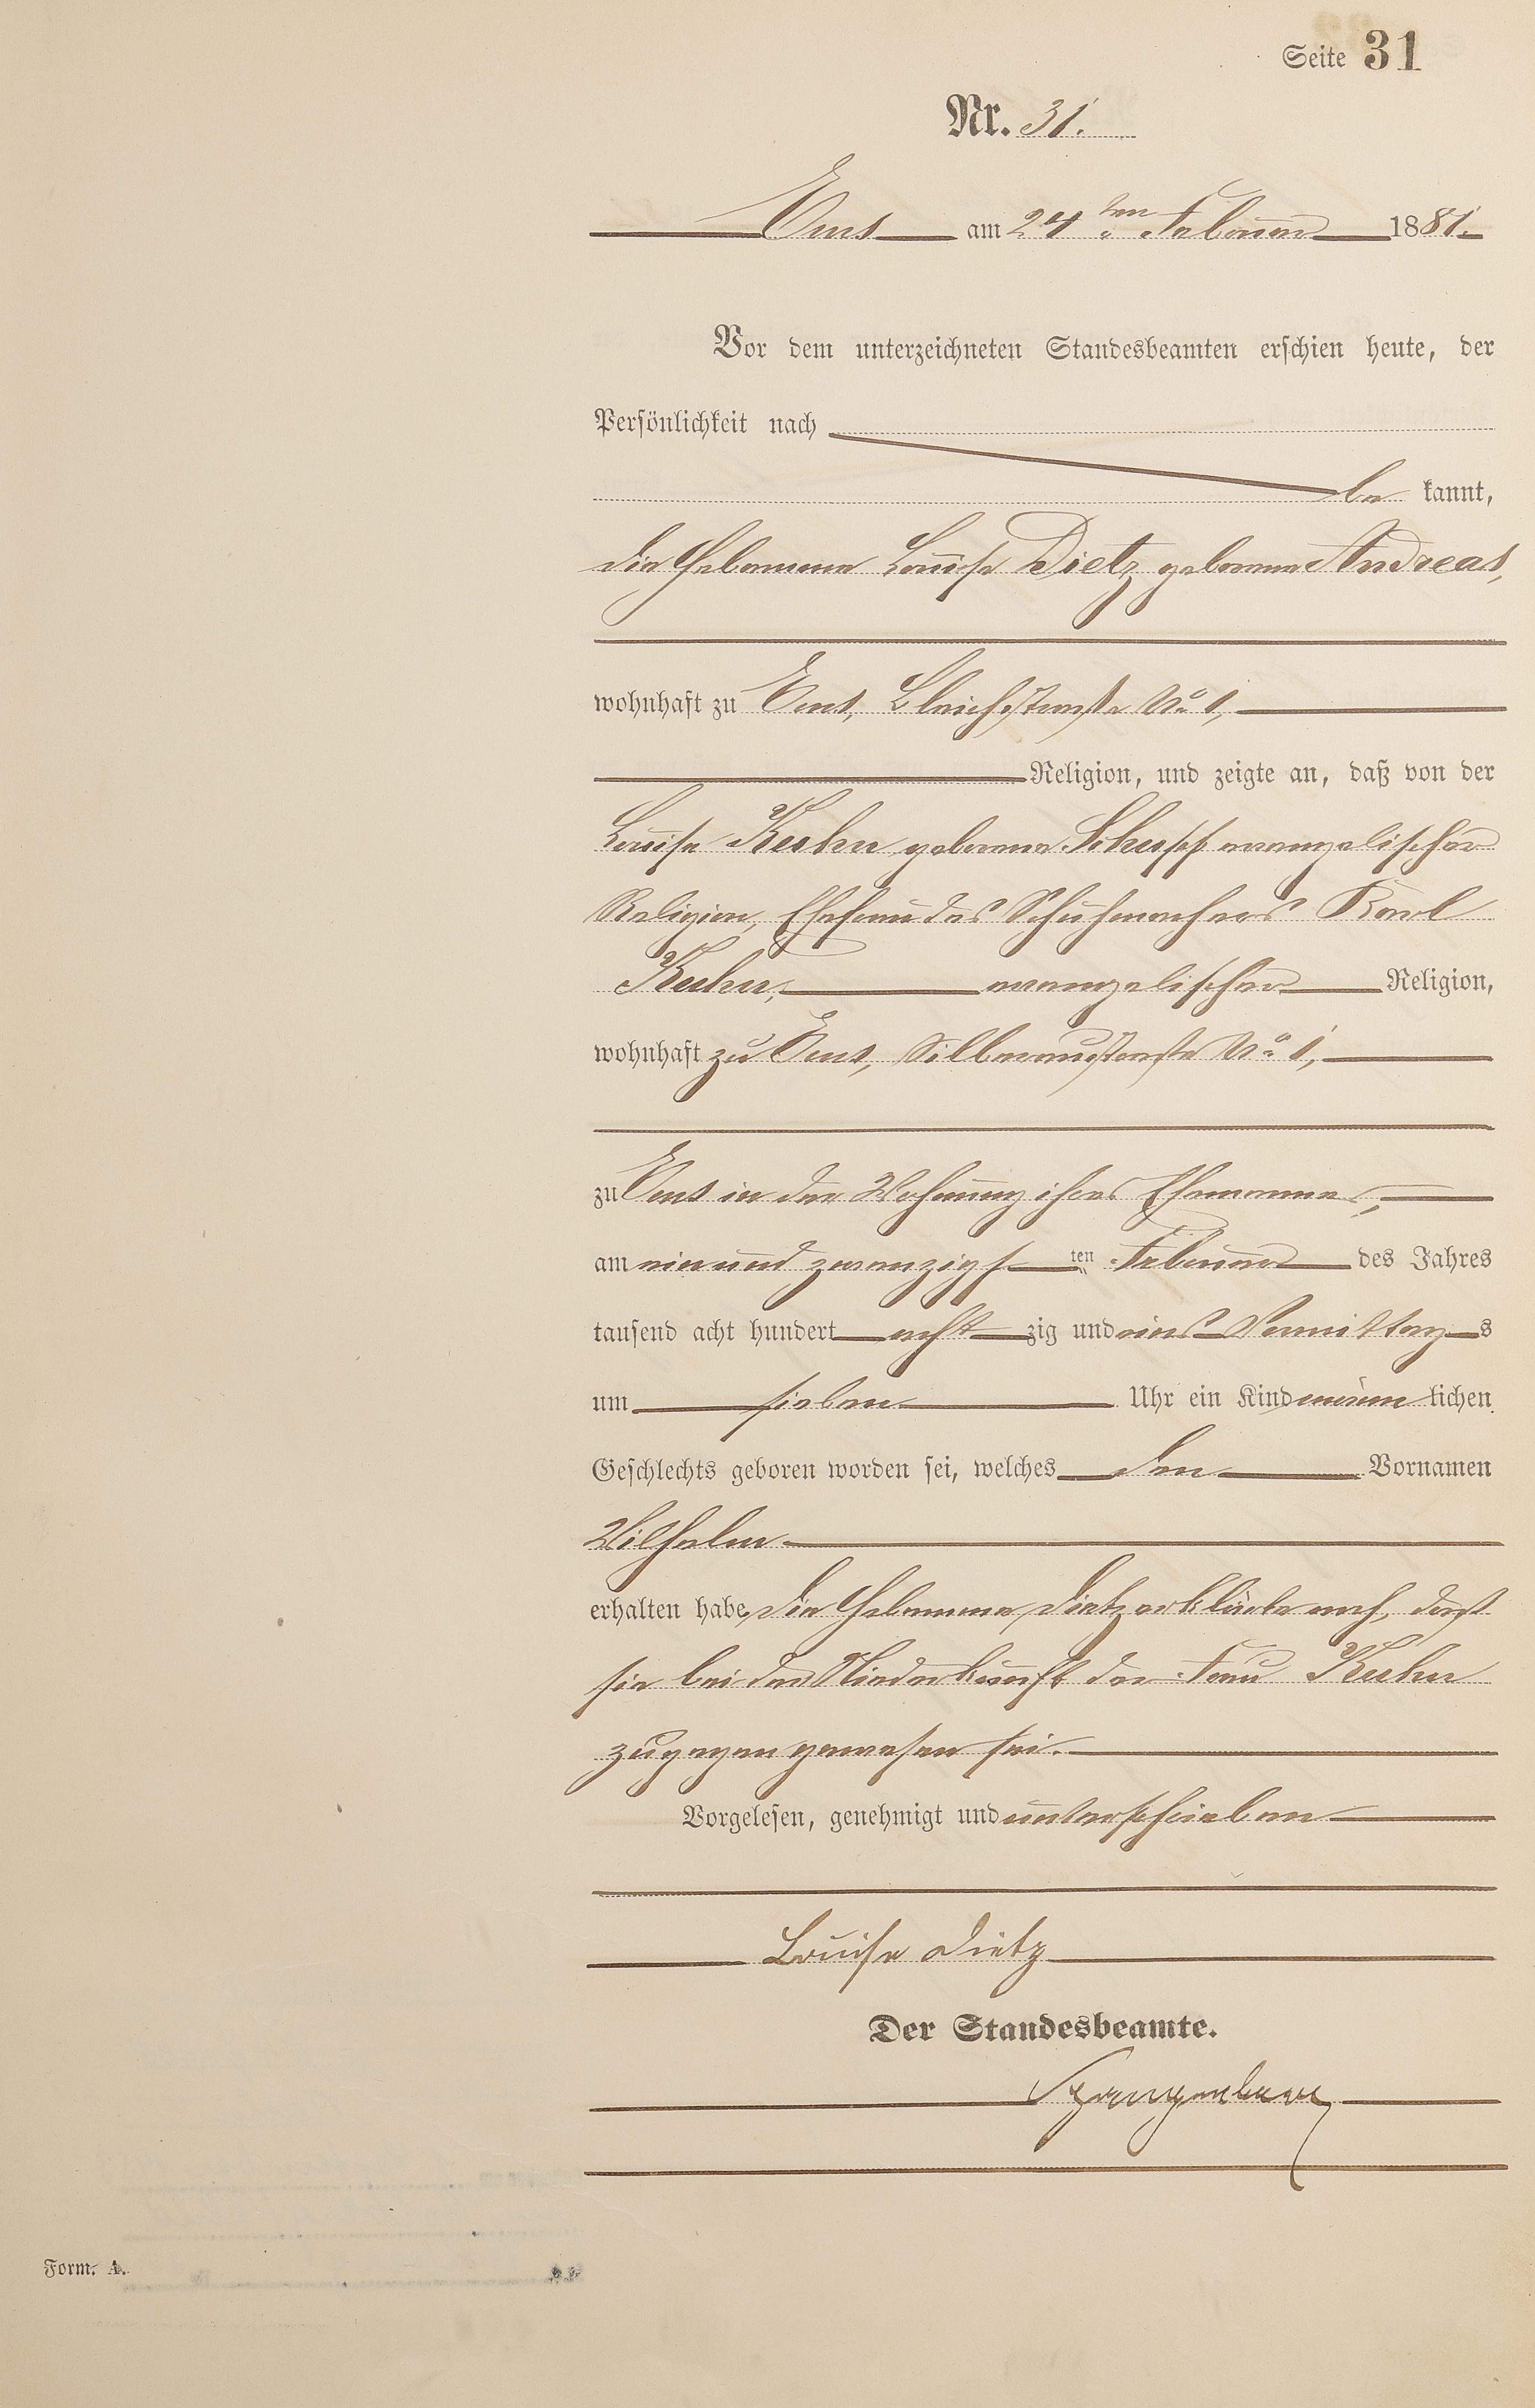 Seite 31
Nr. 31.
Ems am 24ten Februar 1881.
Vor dem unterzeichneten Standesbeamten erschien heute, der
Persönlichkeit nach
be kannt,
die Hebamme Louise Dietz geborene Andreas,
wohnhaft zu Ems, Bleichstraße No 1,
Religion, und zeigte an, daß von der
Louise Kuhn geborene Schupp evangelischer
Religion, Ehefrau des Schuhmachers Karl
Kuhn, evangelischer Religion,
wohnhaft zu Ems, Silberaustraße No 1,
zu Ems in der Wohnung ihres Ehemannes,
am einundzwanzigsten Februar des Jahres
tausend acht hundert achtzig und eins Vormittags
um sieben Uhr ein Kind männlichen
Geschlechts geboren worden sei, welches den Vornamen
Wilhelm
erhalten habe, die Hebamme Dietz erklärte noch, daß
sie bei der Niederkunft der Frau Kuhn
zugegen gewesen sei.
Vorgelesen, genehmigt und unterschrieben
Louise Dietz
Der Standesbeamte.
Spangenberg
Form. A.